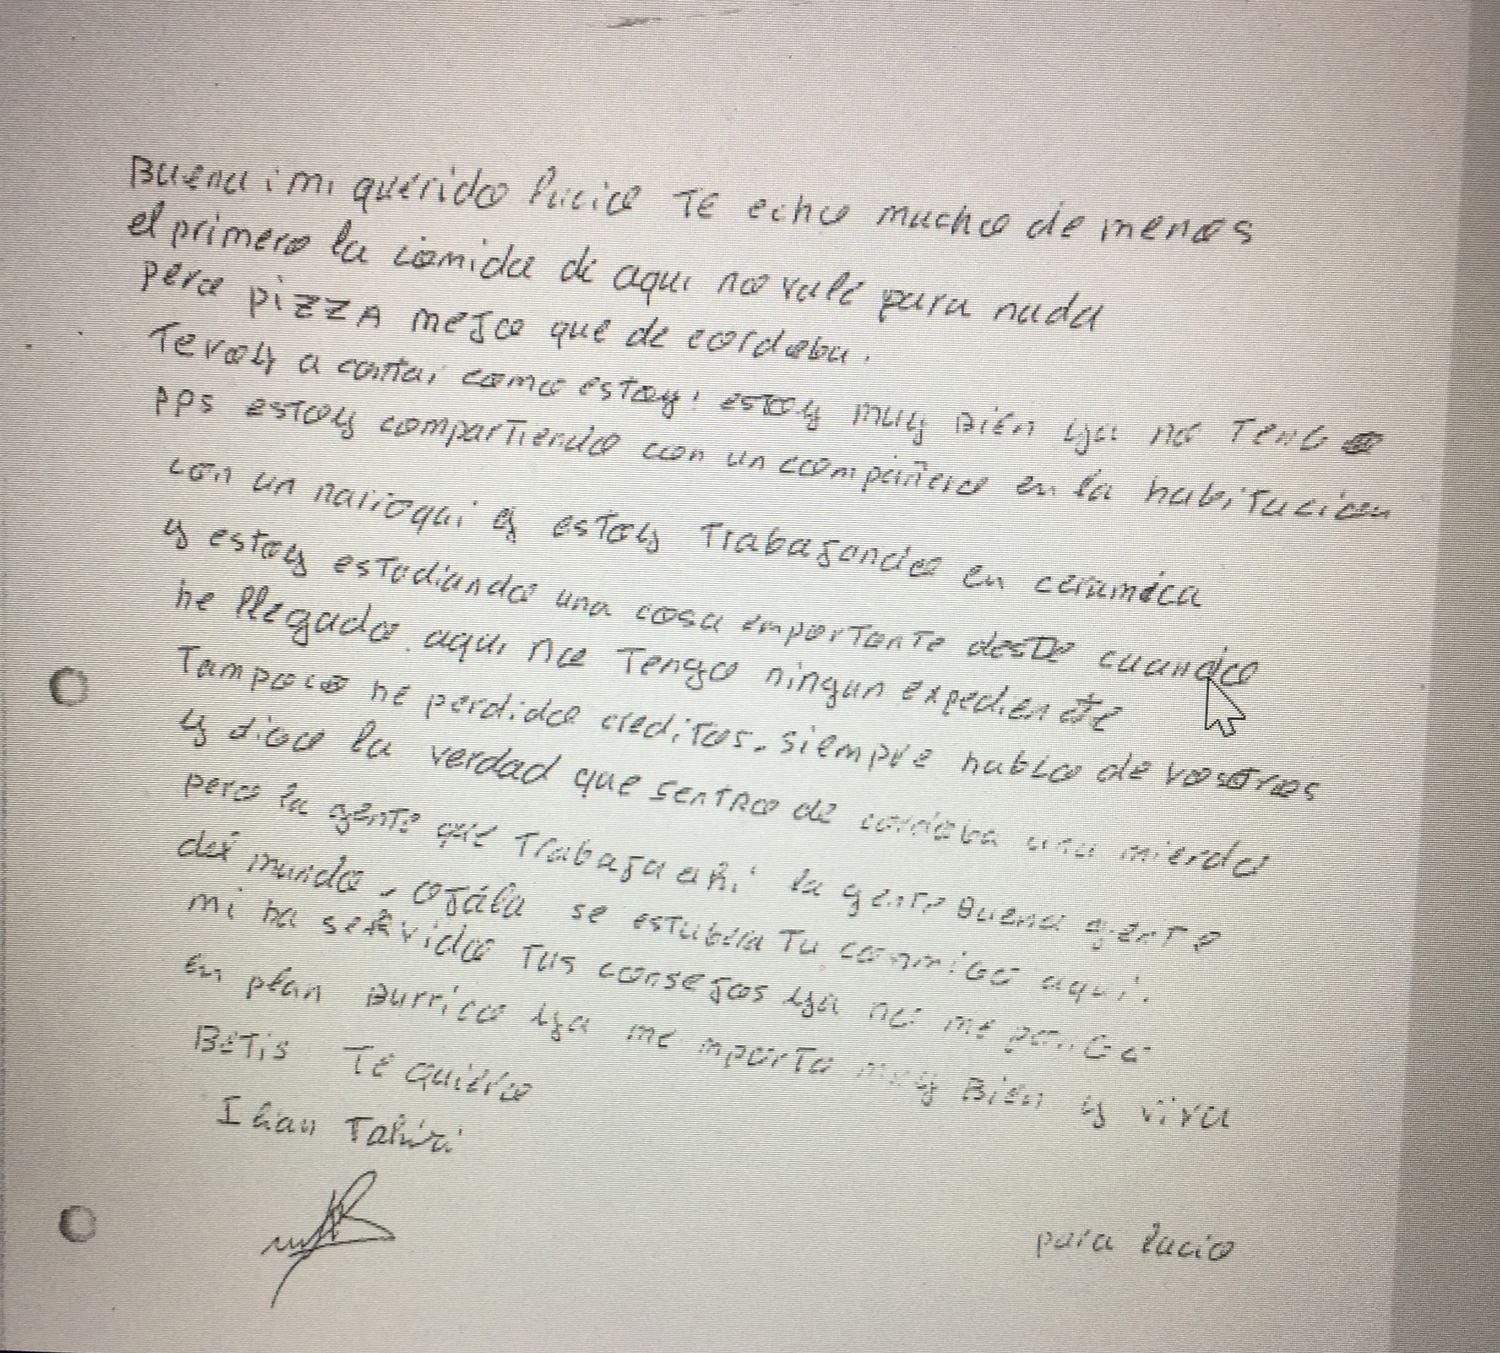 Buena : mi querido lucio TE echo mucho de menos
el primero la comida de aqui no vale para nada
pero pizza mejo que de cordoba.
Te voy a contar como estoy: estoy muy Bien ya no Tengo
PPS estoy compartiendo con un compañero en la habitucion
con un narroqui y estoy Trabajando en ceramica
y estoy estudiando una cosa emportante desde cuando
he llegado. aqui no Tengo ningun expediente
Tampoco he perdido creditos. siempre hablo de vosotros
y digo la verdad que sentro de cordoba una mierda
pero la gente que Trabaja añi la gente Buena gente
del mundo, ojála se estubira Tu conmigo aqui.
mi ha servido Tus consejos ya no me pongo
en plan Burrico ya me mporta muy Bien y viva
Betis TE quiero
Ilian Tahiri
para lucio